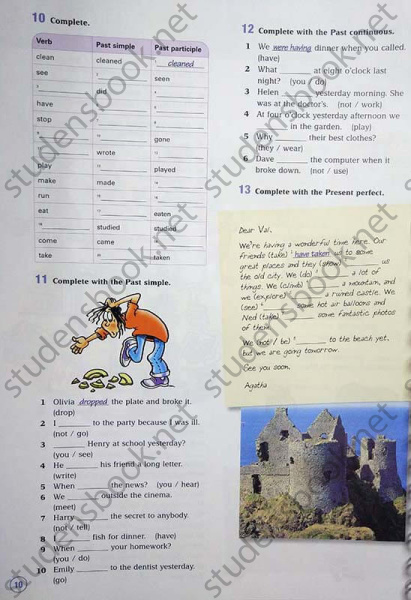 10 Complete.
Verb Past simple Past participle
clean cleaned cleaned
see seen
did
have
stop
gone
wrote
play played
make made
run
eat eaten
studied studied
come came
take taken
11 Complete with the Past simple.
1 Olivia dropped the plate and broke it.
(drop)
2 I ________ to the party because I was ill.
(not / go)
3 ________ Henry at school yesterday?
(you / see)
4 He ________ his friend a long letter.
(write)
5 When ________ the news? (you / hear)
6 We ________ outside the cinema.
(meet)
7 Harry ________ the secret to anybody.
(not / tell)
8 I ________ fish for dinner. (have)
9 When ________ your homework?
(you / do)
10 Emily ________ to the dentist yesterday.
(go)
10
12 Complete with the Past continuous.
1 We were having dinner when you called.
(have)
2 What ________ at eight o'clock last
night? (you / do)
3 Helen ________ yesterday morning. She
was at the doctor's. (not / work)
4 At four o'clock yesterday afternoon we
________ in the garden. (play)
5 Why ________ their best clothes?
(they / wear)
6 Dave ________ the computer when it
broke down. (not / use)
13 Complete with the Present perfect.
Dear Val,
We're having a wonderful time here. Our
friends (take) have taken us to some
great places and they (show) ________ us
the old city. We (do) ________ a lot of
things. We (climb) ________ a mountain, and
we (explore) ________ a ruined castle. We
(see) ________ some hot air balloons and
Ned (take) ________ some fantastic photos
of them.
We (not / be) ________ to the beach yet,
but we are going tomorrow.
See you soon,
Agatha
studensbook.net